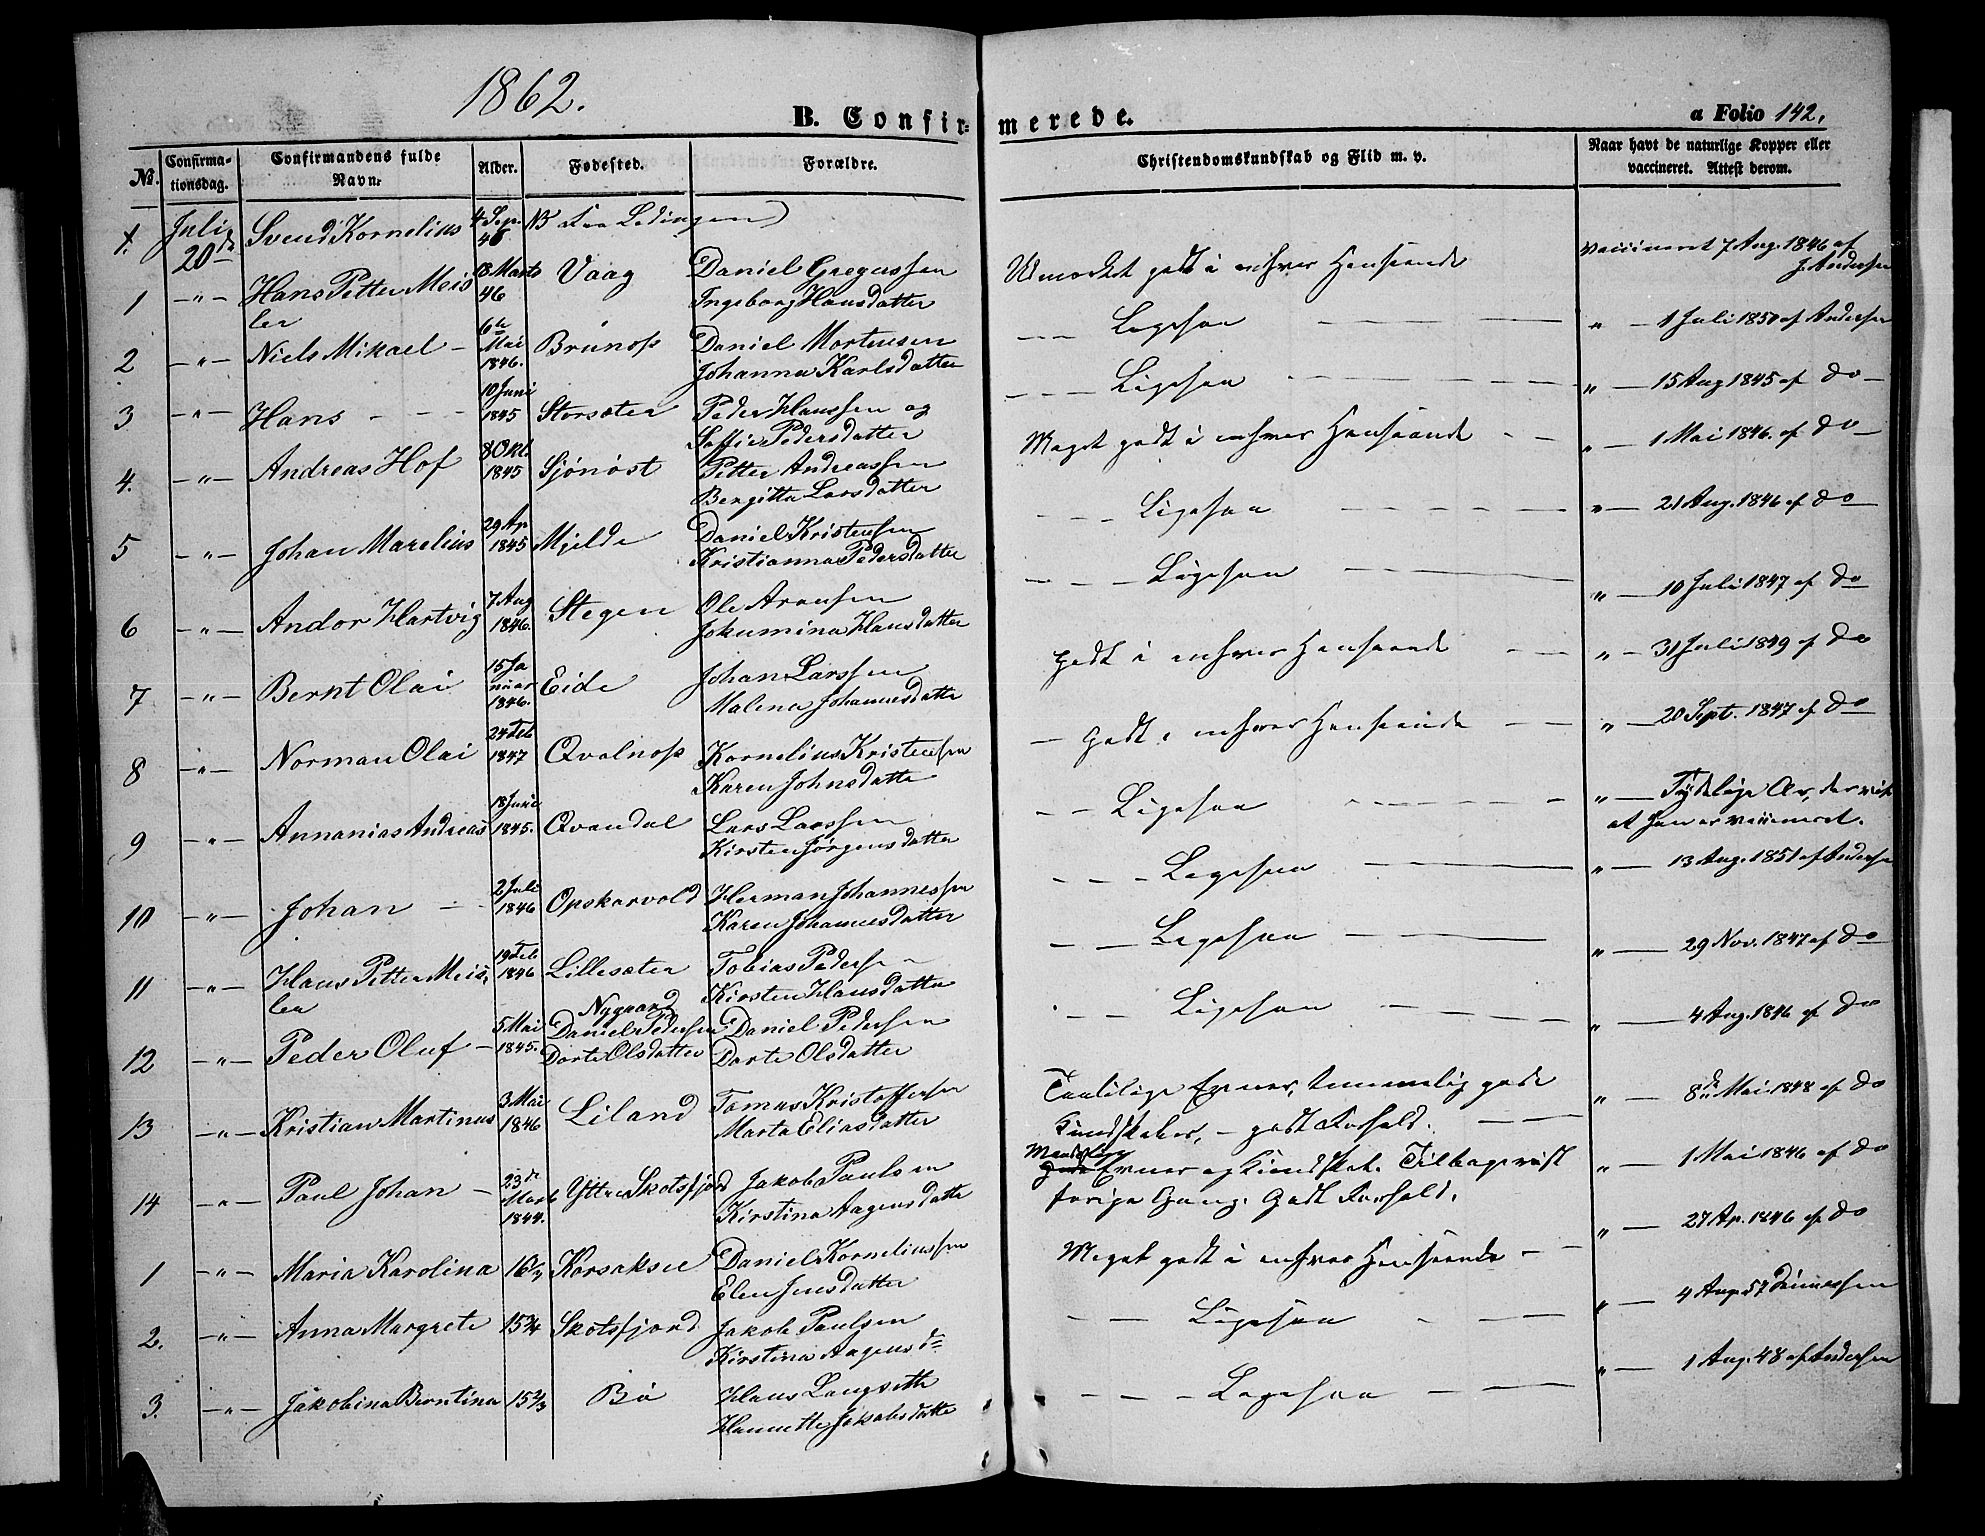 1862.
B. Confir-
merede.
a Folio 142.
№.
Confirma-
tionsdag.
Confirmandens fulde
Navn.
Alder.
Fødested.
Forældre.
Christendomskundskab og Flid m. v.
Naar havt de naturlige Kopper eller
vaccineret. Attest derom.
1. Juli 20de Svend Kornelius 4 Sep. 45 NB fra Lødingen)
vaccineret 7 Aug. 1846 af
J. Andersen
1 -"- Hans Petter Meis 18 Marts Vaag Daniel Gregussen Udmærket godt i enhver Henseende
ler 46 Ingeborg Hansdatter
Ligesaa " 1 Juli 1850 af Andersen
2 -"- Niels Mikael 6te Mai 1846. Brunøss Daniel Mortensen
Johanna Karlsdatter
Ligesaa " 15 Aug 1845 af Do
3 -"- Hans 10 Juni 1845 Storsæter Peder Hanssen og
Soffie Pedersdatter
Meget godt i enhver Henseende " 1 Mai 1846. af Do
4. -"- Andreas Hof 8 Okt. 1845 Sjønøst Petter Andreassen
Bergitta Larsdatter
Ligesaa " 21 Aug. 1846 af Do
5 -"- Johan Marelius 29 Ap 1845 Mjelde Daniel Kristensen
Kristianna Pedersdatter
Ligesaa " 10 Juli 1847 af Do
6 -"- Andor Hartvig 7 Aug 1846. Stegen Ole Aronsen
Jokumina Hansdatter
godt i enhver Henseende " 31 Juli 1849 af Do
7 -"- Bernt Olai 15 Ja nuar 1846. Eide Johan Larssen
Malena Johannesdatter
godt i enhver Henseende " 20 Sept. 1847 af Do
8 -"- Norman Olai 24 Feb 1847 Qvalnøss Kornelius Kristensen
Karen Johnsdatter
Ligesaa " Tydelige Ar, der viser
at han er vaccineret.
9 -"- Annanias Andreas 18 Juni 1845. Qvandal Lars Larssen
Kirsten Jørgensdatter
Ligesaa " 13 Aug. 1851 af Andersen
10 -"- Johan 2 Juli 1846 Opskarvold Herman Johannessen
Karen Johannesdatter
Ligesaa " 29 Nov. 1847 af Do
11 -"- Hans Petter Meis 19 Feb 1846 Lillesæter Tobias Pedersen
ler Kirsten Hansdatter
Ligesaa " 4 Aug. 1846 af Do
Nygaard
12 -"- Peder Oluf 5 Mai 1845. Daniel Pedersen Daniel Pedersen
Dorte Olsdatter Dorte Olsdatter
Taalelige Evner, temmelig gode " 8de Mai 1848 af Do
13 -"- Kristian Martinus 3 Mai 1846 Liland Tomas Kristoffersen
Marta Eliasdatter
Kundskaber, - godt Forhold.
Maadelige
Gode Evner og Kundskab. Tilbagevist " 1 Mai 1846 af Do
14 -"- Paul Johan 23de Marts 1844. Yttre Skotsfjord Jakob Paulsen
Kirstina Aagensdatter
forrige Gang. Godt Forhold.
" 27 Ap. 1846 af Do
1 -"- Maria Karolina 16 1/3 Korsaksel Daniel Korneliussen
Elen Jensdatter
Meget godt i enhver Henseende
" 4 Aug 57
2. -"- Anna Margrete 15 3/4 Skotsfjord Jakob Paulsen
Kirstina Aagensd=
Ligesaa " 1 Aug. 48 af Andersen
3. -"- Jakobina Berntina 15 2/3 Bø Hans Langseth
Hannette Jakobsdatter
Ligesaa